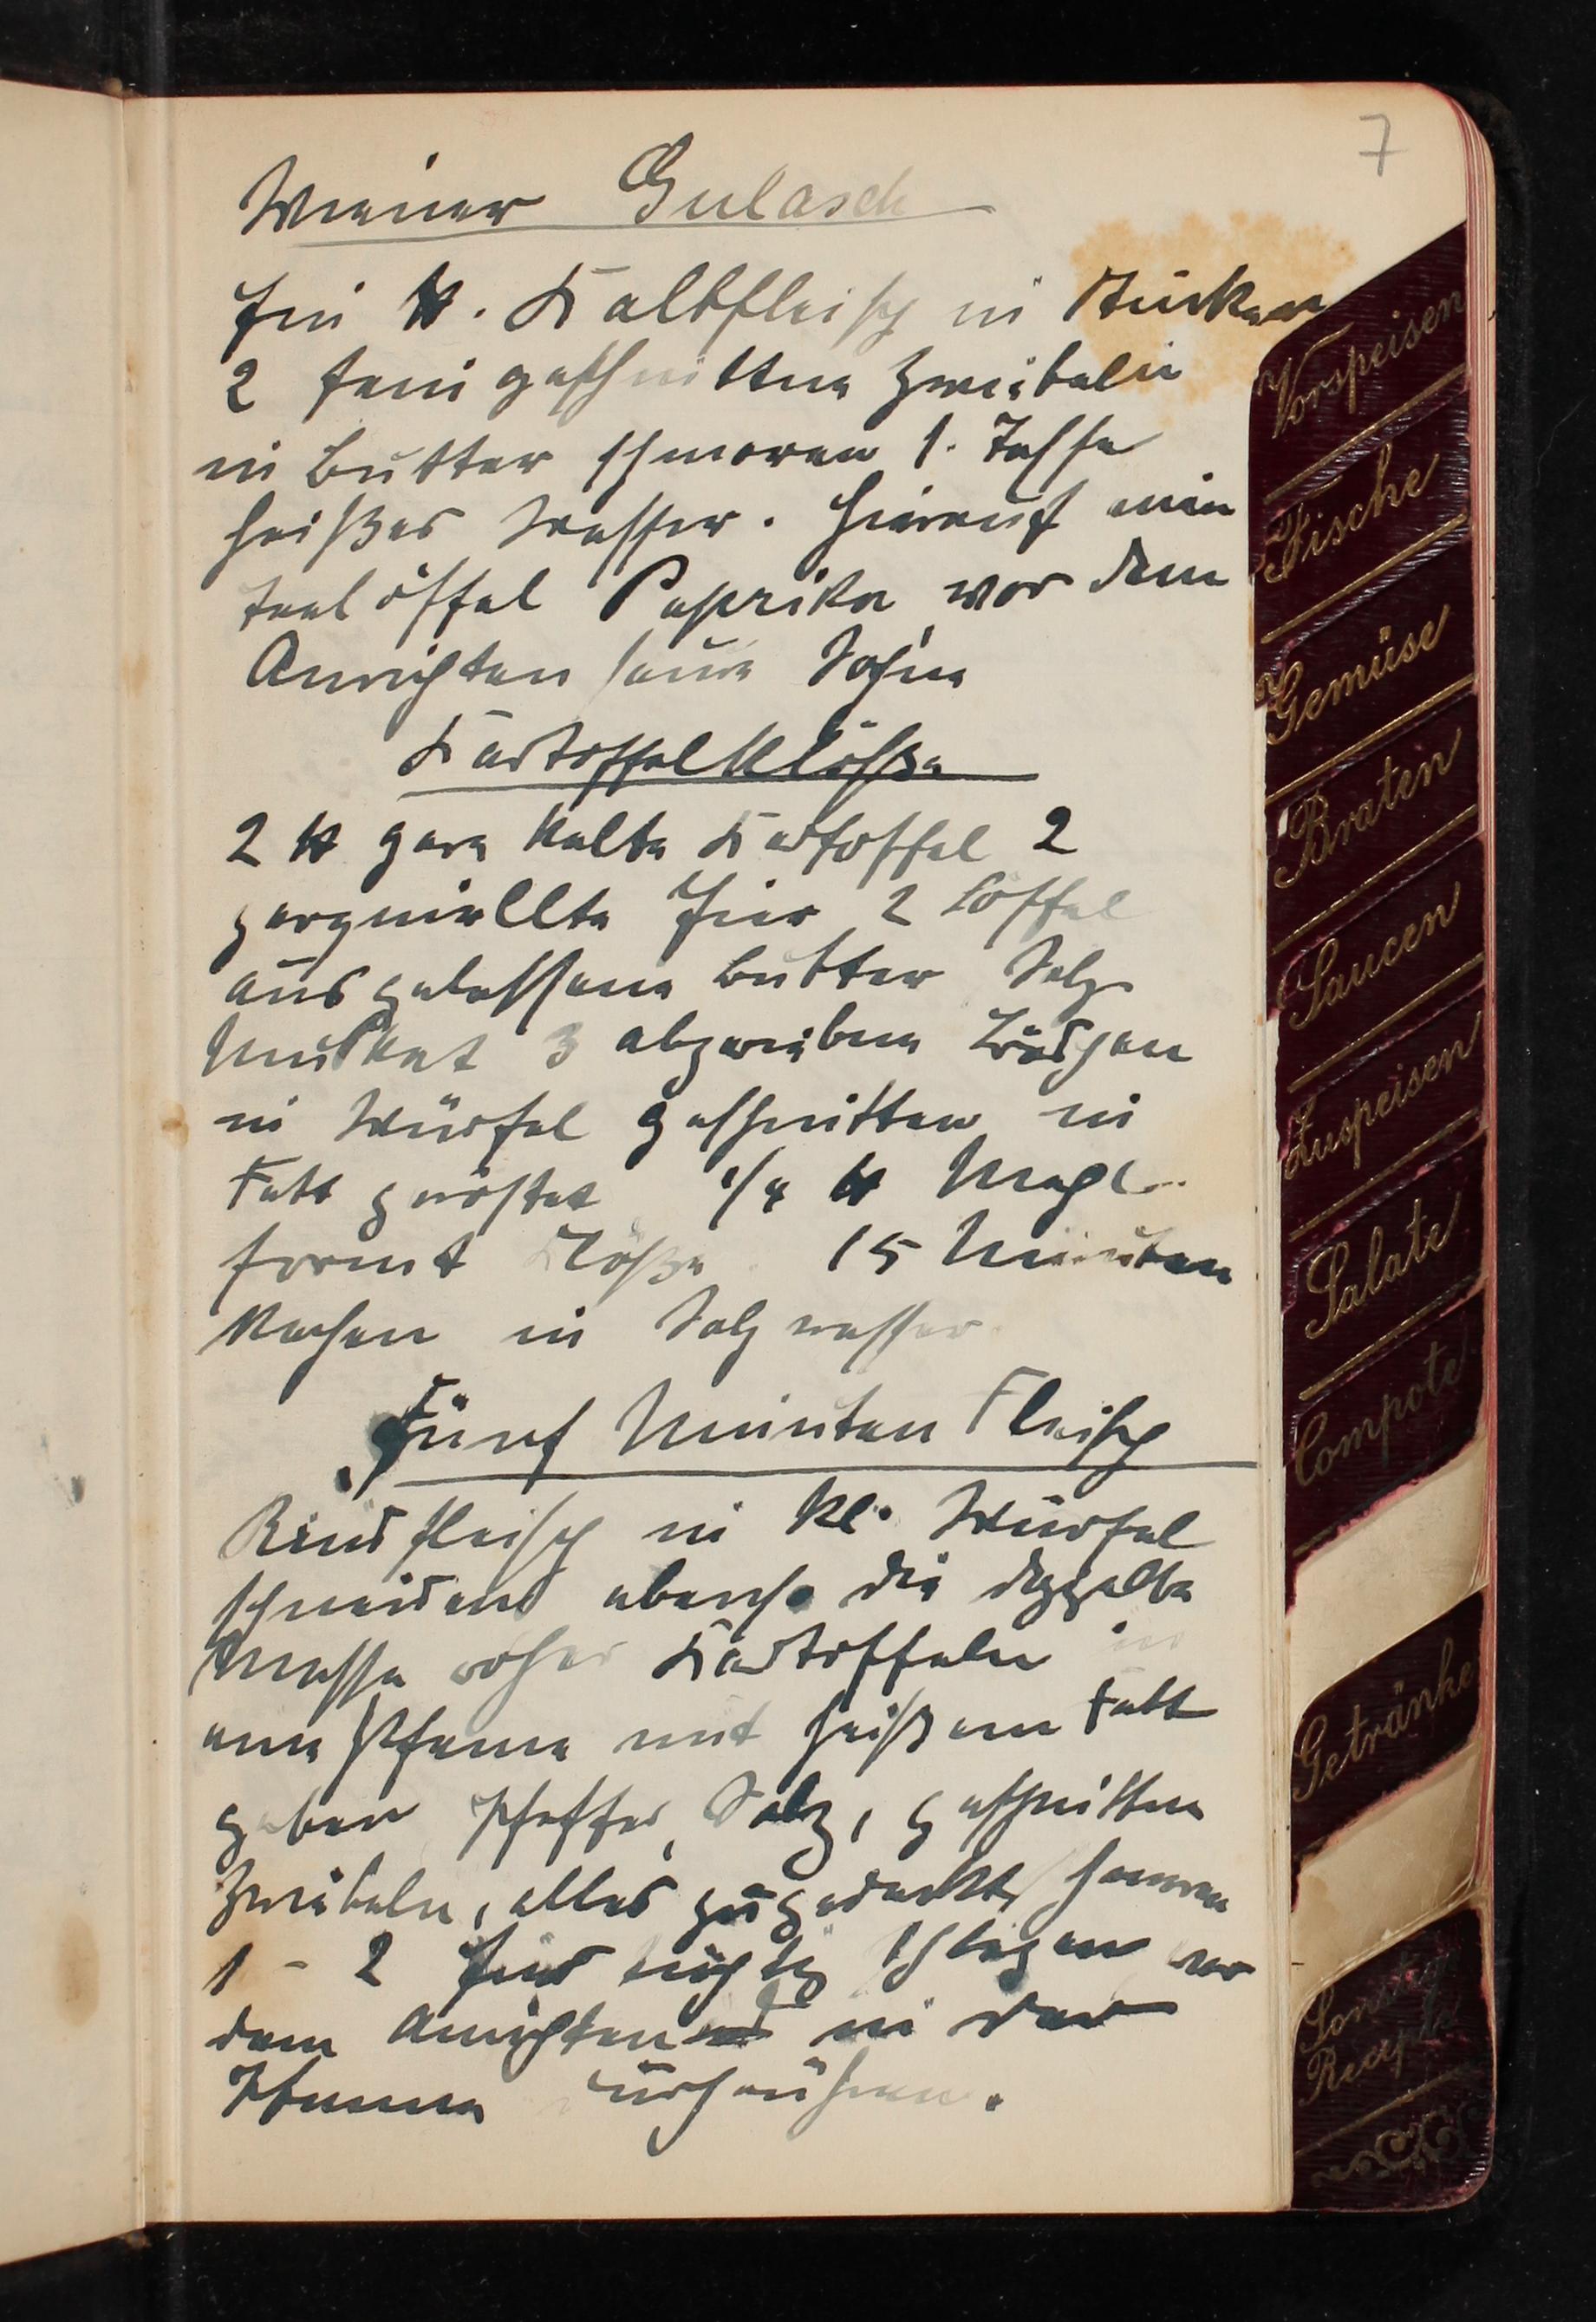 7
Wiener Gulasch
Ein ℔. Kalbfleisch in Stücken
2 fein geschnittene Zwiebeln
in Butter schmoren 1. Tasse
heißes Wasser. Hierauf ein
Teelöffel Paprika, vor dem
Anrichten saure Sahne
Kartoffelklöße
2 ℔ gare kalte Kartoffel 2
zerquirllte Eier 2 Löffel
ausgelassene Butter Salz
Muskat 3 abgeriebene Brödchen
in Würfel geschnitten in
Fett geröstet 1/4 ℔ Mehl
formt Klöße 15 Minuten
kochen in Salzwasser.
Fünf Minuten Fleisch
Rindfleisch in kl. Würfel
schneiden ebenso die doppelte
Masse roher Kartoffeln in
eine Pfanne mit heißem Fett
geben Pfeffer, Salz, geschnittene
Zwiebeln, alles zugedeckt schmoren
1 - 2 Eier tüchtig schlagen vor
dem Anrichten in der
Pfanne
Vorspeisen
Fische
Gemüse
Braten
Saucen
Zuspeisen
Salate
Compote
Getränke
Sonstige
Recepte